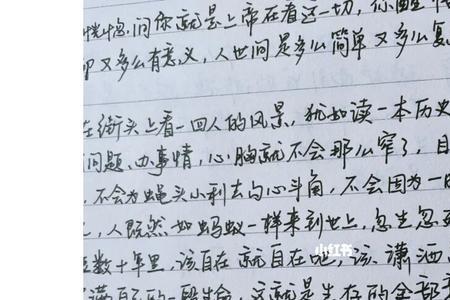 恍惚.间你就是上帝在看这一切,你
又多么有意义,人世间是多么简单又多么复
在街头上看一四人的风景,犹如读一本历史
问题、办事情,心胸就不会那么窄了,目
,不会为蝇头小利去勾心斗角,不会因为一
,人既然如蚂蚁一样来到世上,忽生忽
数十年里,该自在就自在吧,该潇洒
小红书
满自己的一段生命,这就是生存的全部